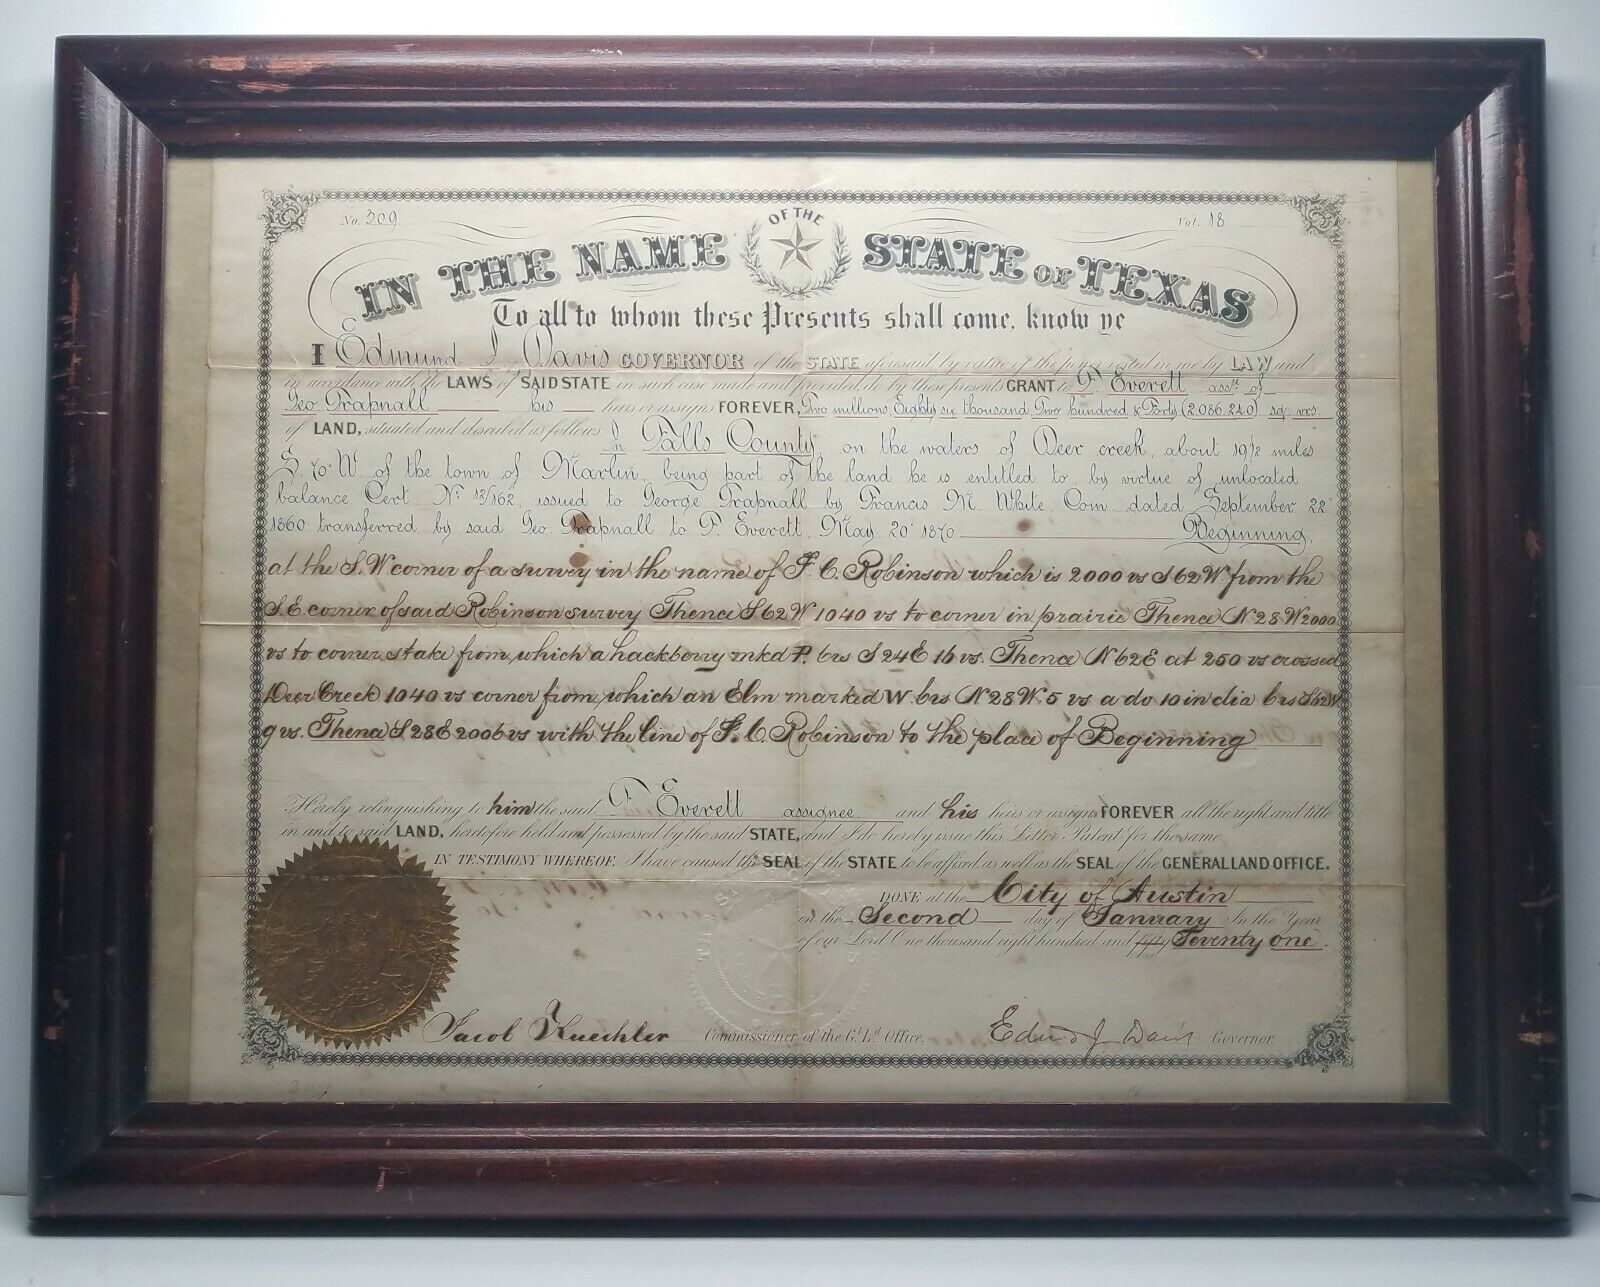 No. 309 Vol. 18
IN THE NAME OF THE STATE OF TEXAS
To all to whom these Presents shall come, know ye
I Edmund J. Davis GOVERNOR of the STATE aforesaid by virtue of the power vested in me by LAW and
in accordance with the LAWS of SAID STATE in such case made and provided do by these presents GRANT to F. Everett assee of
Geo Trapnall his heirs or assigns FOREVER, Two millions Eighty six thousand Two hundred & Forty (2.086.240) sq. vrs.
of LAND, situated and described as follows In Falls County, on the waters of Deer creek, about 19 1/2 miles
S. 70° W of the town of Marlin, being part of the land he is entitled to by virtue of unlocated
balance Cert. No. 13/162, issued to George Trapnall by Francis M. White, Com. dated September 22d
1860 transferred by said Geo. Trapnall to F. Everett, May 20' 1870 Beginning
at the S.W corner of a survey in the name of F. C. Robinson which is 2000 vs S 62 W from the
S.E. corner of said Robinson survey Thence S 62 W 1040 vs to corner in prairie Thence N 28 W 2000
vs to corner stake from which a hackberry mkd P. brs S 24 E 16 vs. Thence N 62 E at 250 vs crossed
Deer Creek 1040 vs corner from which an Elm marked W. brs N 28 W 5 vs a do 10 in dia brs S 62 W
9 vs. Thence S 28 E 2006 vs with the line of F. C. Robinson to the place of Beginning
Hereby relinquishing to him the said F. Everett assignee and his heirs or assigns FOREVER all the right and title
in and to said LAND, heretofore held and possessed by the said STATE, and I do hereby issue this Letter Patent for the same.
IN TESTIMONY WHEREOF, I have caused the SEAL of the STATE to be affixed as well as the SEAL of the GENERAL LAND OFFICE.
DONE at the City of Austin
on the Second day of January In the Year
of our Lord One thousand eight hundred and fifty Seventy one.
Jacob Kuechler Commissioner of the Gl. Ld. Office. Edmund J Davis Governor